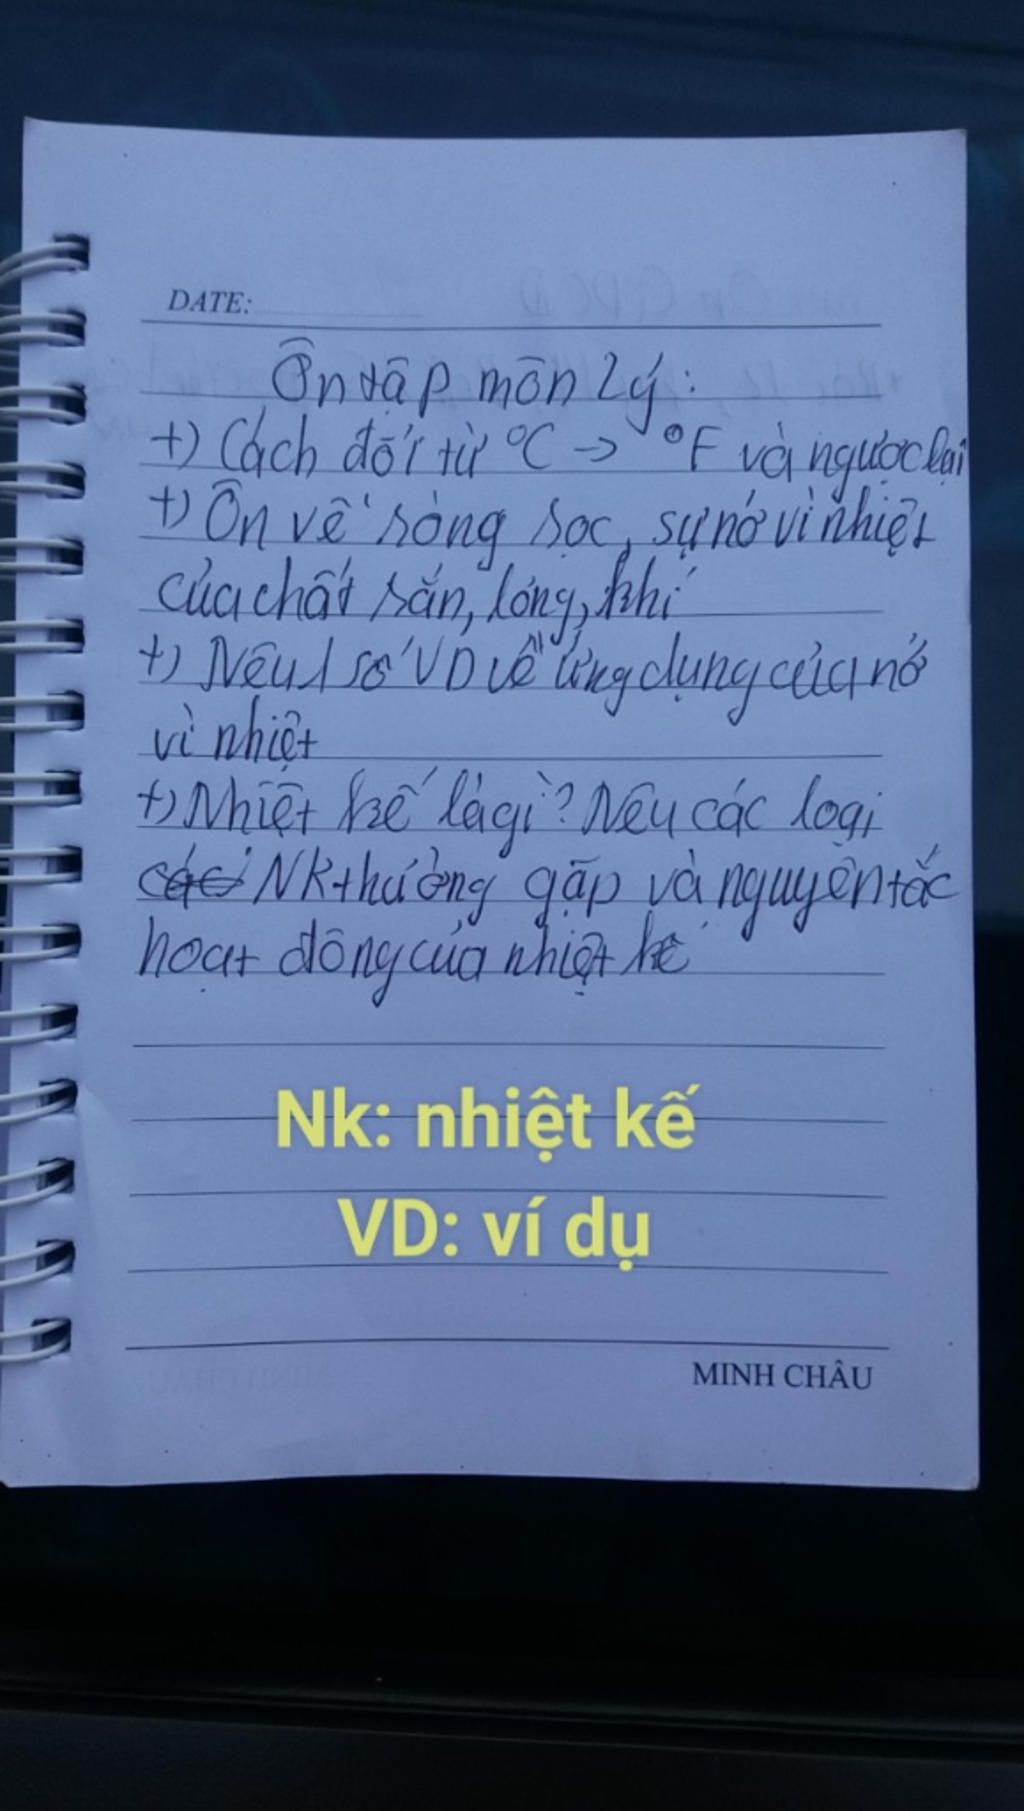 DATE:
Ôn tập môn Lý:
+) Cách đổi từ °C → °F và ngược lại
+) Ôn về ròng rọc, sự nở vì nhiệt
của chất rắn, lỏng, khí
+) Nêu 1 số VD về ứng dụng của nở
vì nhiệt
+) Nhiệt kế là gì? Nêu các loại
các NK thường gặp và nguyên tắc
hoạt động của nhiệt kế
Nk: nhiệt kế
VD: ví dụ
MINH CHÂU